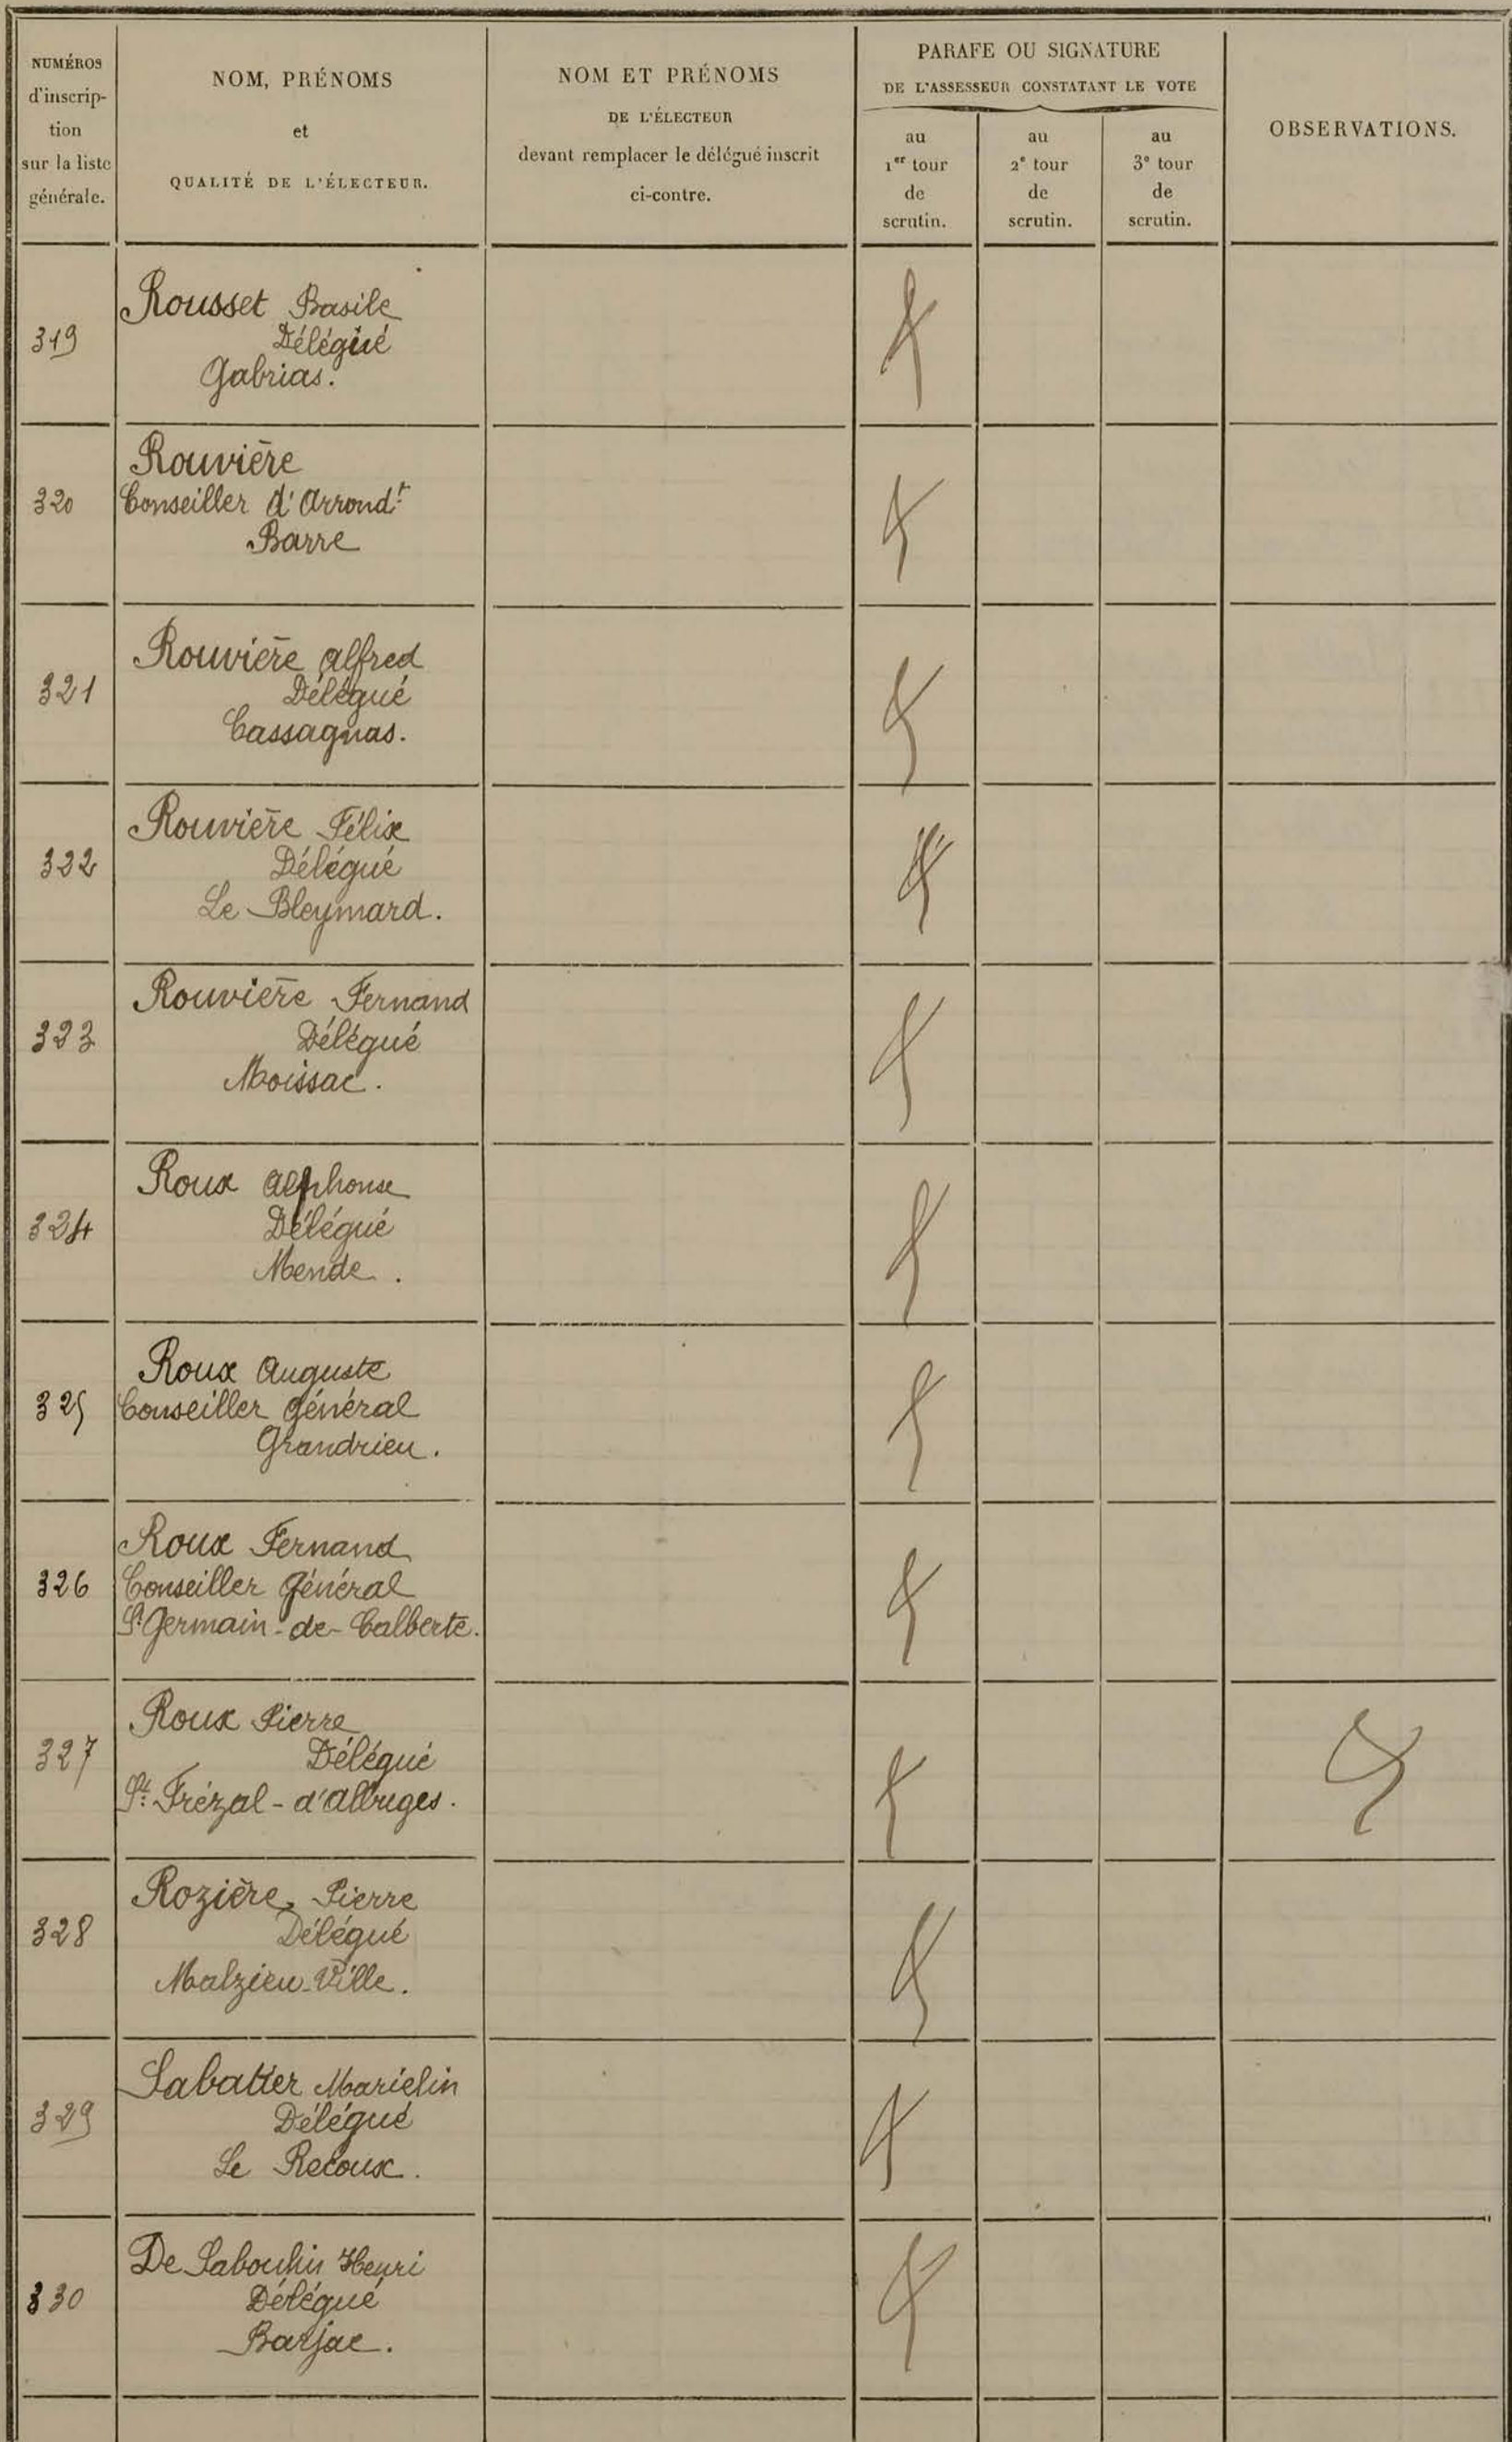 NUMÉROS
d'inscrip-
tion
sur la liste
générale.
NOM, PRÉNOMS
et
QUALITÉ DE L'ÉLECTEUR.
NOM ET PRÉNOMS
DE L'ÉLECTEUR
devant remplacer le délégué inscrit
ci-contre.
PARAFE OU SIGNATURE
DE L'ASSESSEUR CONSTATANT LE VOTE
au
1er tour
de
scrutin.
au
2e tour
de
scrutin.
au
3e tour
de
scrutin.
OBSERVATIONS.
319
Rousset Basile
Délégué
Gabrias.
320
Rouvière
Conseiller d'Arrondt
Barre
321
Rouvière Alfred
Délégué
Cassagnas.
322
Rouvière Félix
Délégué
Le Bleymard.
323
Rouvière Fernand
Délégué
Moissac.
324
Roux Alphonse
Délégué
Mende.
325
Roux Auguste
Conseiller Général
Grandrieu.
326
Roux Fernand
Conseiller Général
St Germain-de-Calberte.
327
Roux Pierre
Délégué
St. Frézal-d'Albuges.
328
Rozière, Pierre
Délégué
Malzieu-Ville.
329
Sabatier
Délégué
Le Recoux.
330
De Henri
Délégué
Barjac.